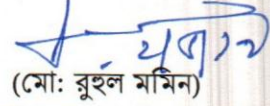 (মো: রুহুল মমিন)